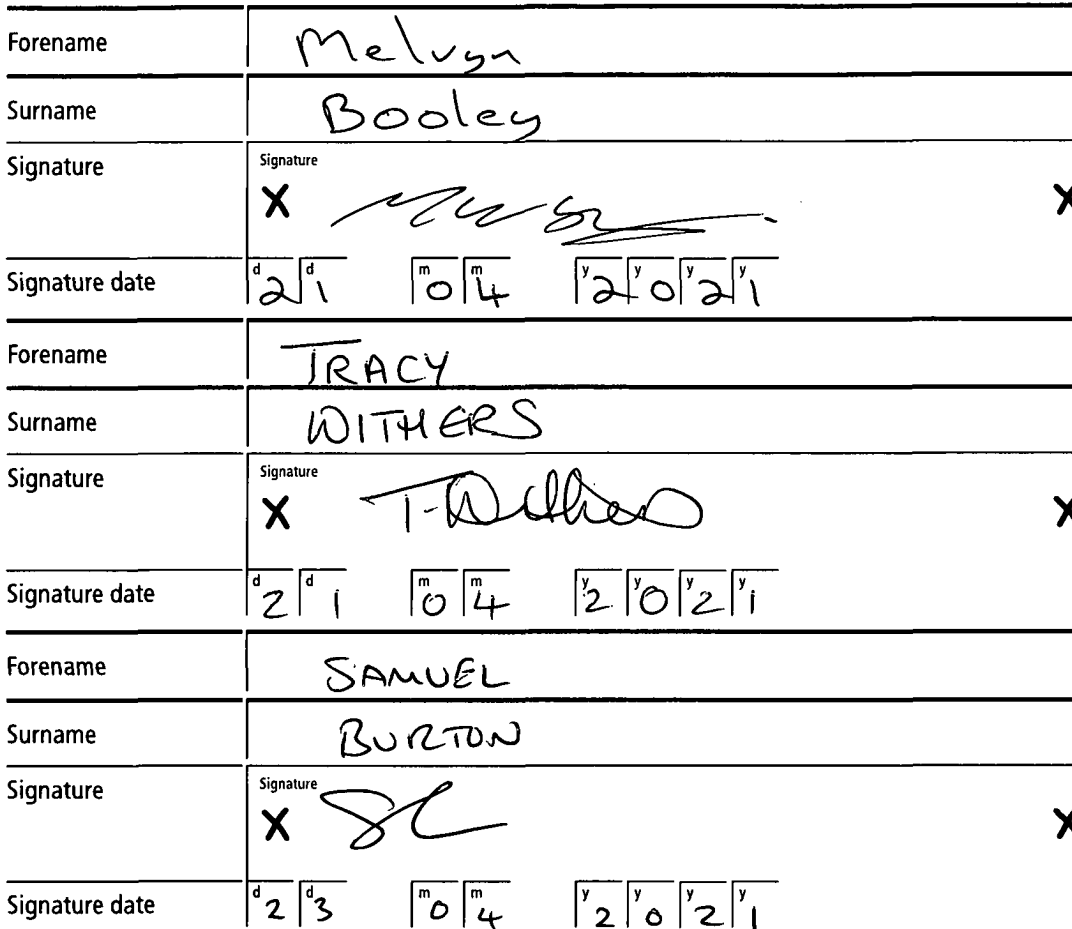 Forename Melvyn
Surname Booley
Signature Signature
X X
Signature date d 2 d 1 m 0 m 4 y 2 y 0 y 2 y 1
Forename TRACY
Surname WITHERS
Signature Signature
X T. Withers X
Signature date d 2 d 1 m 0 m 4 y 2 y 0 y 2 y 1
Forename SAMUEL
Surname BURTON
Signature Signature
X X
Signature date d 2 d 3 m 0 m 4 y 2 y 0 y 2 y 1